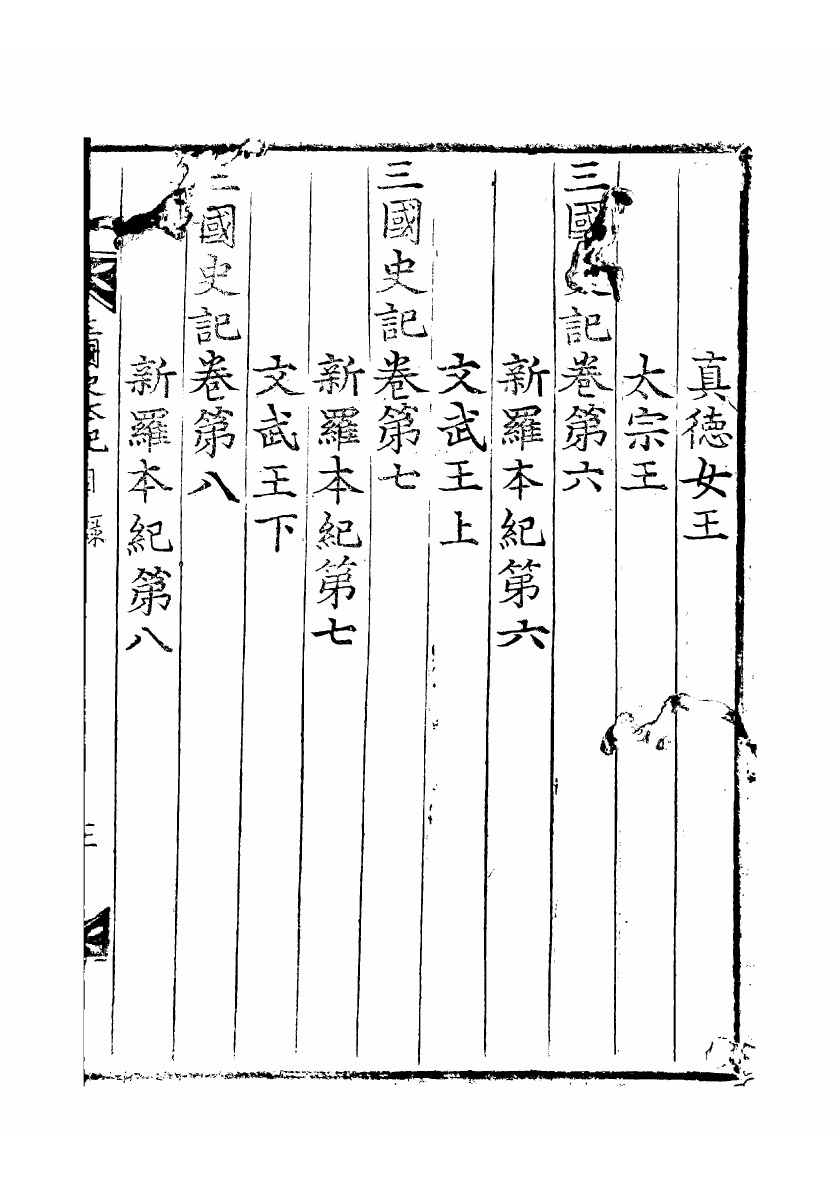 真德女王
太宗王
三國史記卷第六
新羅本紀第六
文武王上
三國史記卷第七
新羅本紀第七
文武王下
三國史記卷第八
新羅本紀第八
三